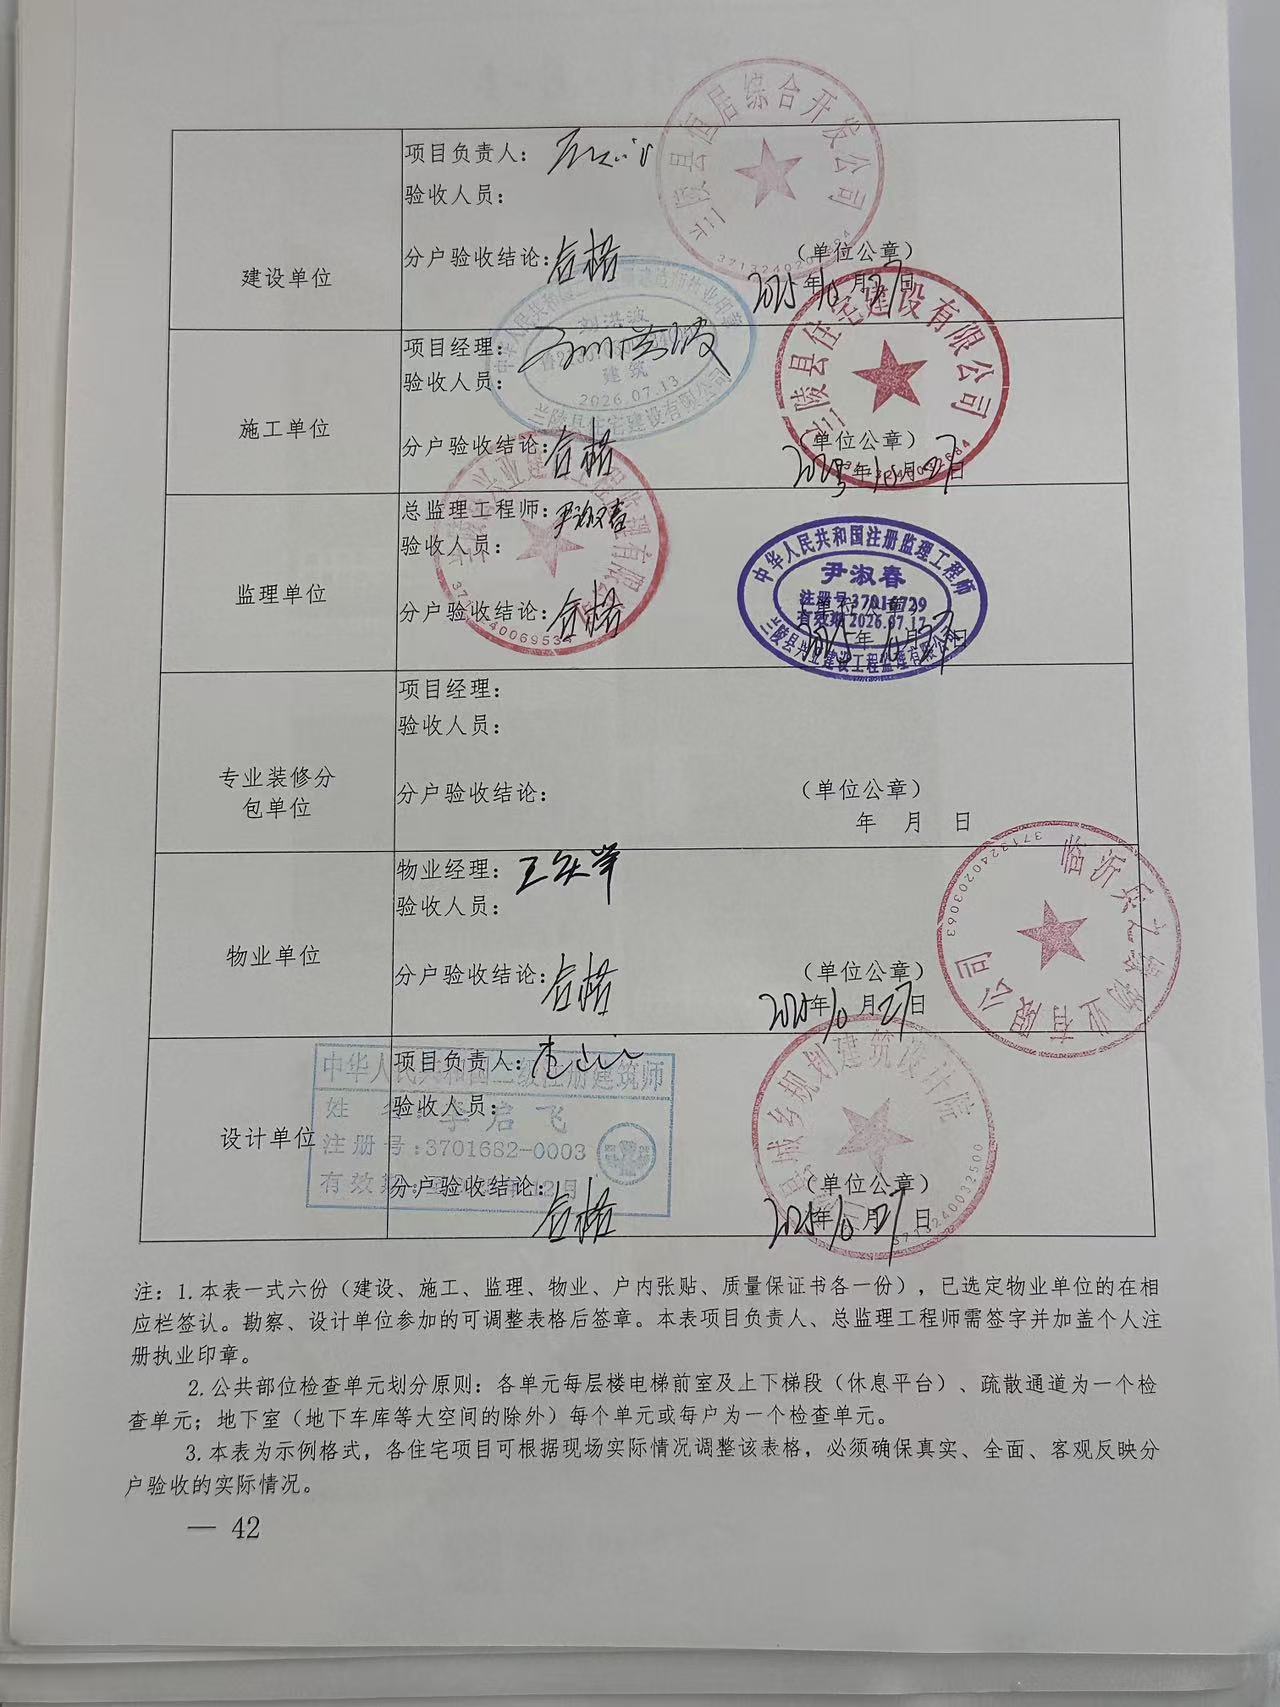 兰陵县恒居综合开发公司
项目负责人：
验收人员：
分户验收结论：合格
（单位公章）
建设单位
2025年10月27日
兰陵县住宅建设有限公司
刘洪波
建筑
2026.07.13
兰陵县住宅建设有限公司
项目经理：刘洪波
验收人员：
施工单位
分户验收结论：合格
（单位公章）
2025年10月27日
总监理工程师：尹淑春
验收人员：
监理单位
分户验收结论：合格
（单位公章）
2025年10月27日
中华人民共和国注册监理工程师
尹淑春
注册号37016729
有效期2026.07.17
兰陵县兴业建设工程监理有限公司
项目经理：
验收人员：
专业装修分
包单位
分户验收结论：
（单位公章）
年 月 日
物业经理：
验收人员：
物业单位
分户验收结论：合格
（单位公章）
2025年10月27日
3713240203063
项目负责人：
中华人民共和国二级注册建筑师
验收人员：
设计单位
注册号:3701682-0003
分户验收结论：合格
（单位公章）
2025年10月27日
县城乡规划建筑设计院
3713240032500
注：1.本表一式六份（建设、施工、监理、物业、户内张贴、质量保证书各一份），已选定物业单位的在相
应栏签认。勘察、设计单位参加的可调整表格后签章。本表项目负责人、总监理工程师需签字并加盖个人注
册执业印章。
2.公共部位检查单元划分原则：各单元每层楼电梯前室及上下梯段（休息平台）、疏散通道为一个检
查单元；地下室（地下车库等大空间的除外）每个单元或每户为一个检查单元。
3.本表为示例格式，各住宅项目可根据现场实际情况调整该表格，必须确保真实、全面、客观反映分
户验收的实际情况。
— 42